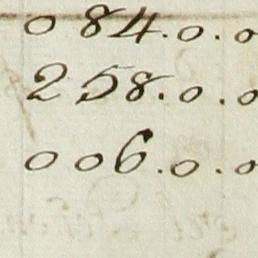 084.0.0
258.0.0
006.0.0